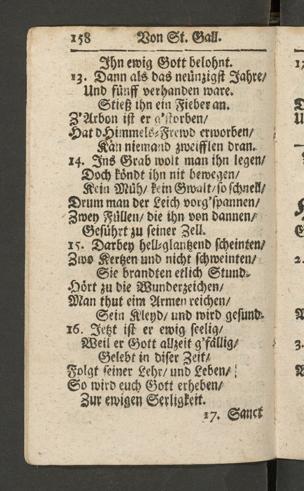 158 Von St. Gall.
Ihn ewig Gott belohnt.
13. Dann als das neünzigst Jahre/
Und fünff verhanden ware.
Stieß ihn ein Fieber an.
Z'Arbon ist er g'storben/
Hat d'Himmels-Frewd erworben/
Kan niemand zweifflen dran.
14. Ins Grab wolt man ihn legen/
Doch köndt ihn nit bewegen/
Kein Müh/ kein Gwalt/ so schnell/
Drum man der Leich vorg'spannen/
Zwey Füllen/ die ihn von dannen/
Geführt zu seiner Zell.
15. Darbey hell-glantzend scheinten/
Zwo Kertzen und nicht schweinten/
Sie brandten etlich Stund.
Hört zu die Wunderzeichen/
Man thut eim Armen reichen/
Sein Kleyd/ und wird gesund.
16. Jetzt ist er ewig seelig/
Weil er Gott allzeit g'fällig/
Gelebt in diser Zeit/
Folgt seiner Lehr/ und Leben/
So wird euch Gott erheben/
Zur ewigen Serligkeit.
17. Sanct